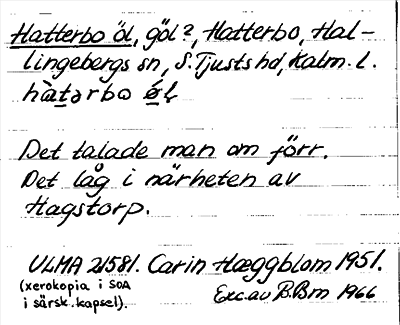 Hatterbo öl, göl?, Hatterbo, Hal-
lingebergs sn, S. Tjusts hd, Kalm. l.
hàtərbo
Det talade man om förr.
Det låg i närheten av
Hagstorp.
ULMA 21581. Carin Hæggblom 1951.
(xerokopia i SOA
i särsk. kapsel).
Exc. av B. Bm 1966